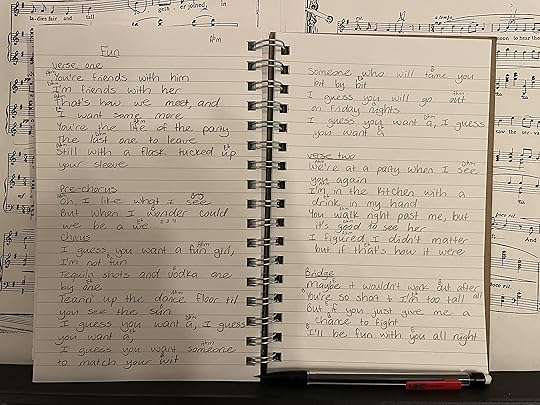 geth - er joined, in
la-dies fair and fall
a tempo
Fun
verse one
You're friends with him
I'm friends with her
That's how we meet, and
I want some more
You're the life of the party
The last one to leave
Still with a flask tucked up
your sleeve
Pre-chorus
Oh, I like what I see
But when I wonder could
we be a we... 2 3 4
Chorus
I guess you want a fun girl,
I'm not fun
Tequila shots and vodka one
by one
Tearin' up the dance floor til
you see the sun
I guess you want a, I guess
you want a,
I guess you want someone
to match your wit
someone who will tame you
bit by bit
I guess you will go out
on Friday nights
I guess you want a, I guess
you want a
verse two
We're at a party when I see
you again
I'm in the kitchen with a
drink in my hand
You walk right past me, but
it's good to see her
I figured I didn't matter
but if that's how it were
Bridge
Maybe it wouldn't work out after
all
You're so short & I'm too tall
But if you just give me a
chance to fight
I'll be fun with you all night
poco rit.
And
poco rit.